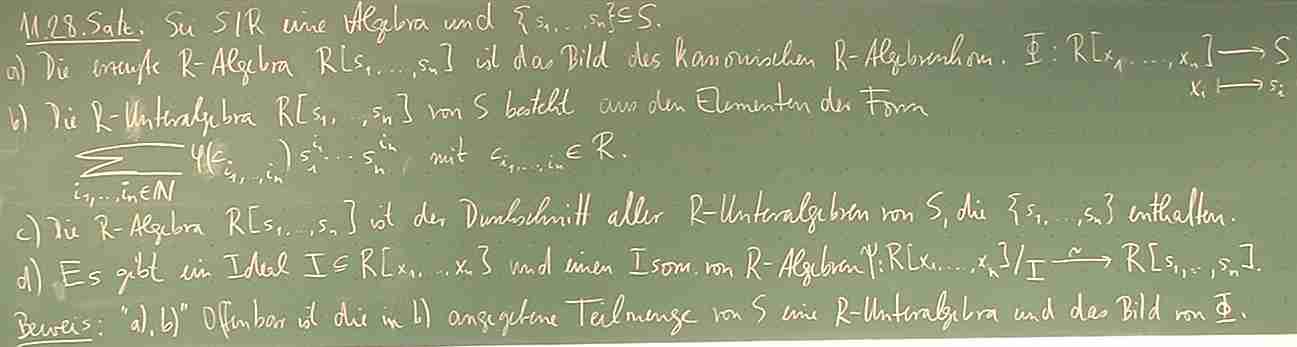 11.28. Satz. Sei S/R eine Algebra und {s₁,...,sₙ} ⊆ S.
a) Die erzeugte R-Algebra R[s₁,...,sₙ] ist das Bild des kanonischen R-Algebrenhom. Φ: R[x₁,...,xₙ] ⟶ S
xᵢ ⟼ sᵢ
b) Die R-Unteralgebra R[s₁,...,sₙ] von S besteht aus den Elementen der Form
∑_{i₁,...,iₙ∈ℕ} φ(c_{i₁,...,iₙ}) s₁^{i₁} ... sₙ^{iₙ} mit c_{i₁,...,iₙ} ∈ R.
c) Die R-Algebra R[s₁,...,sₙ] ist der Durchschnitt aller R-Unteralgebren von S, die {s₁,...,sₙ} enthalten.
d) Es gibt ein Ideal I ⊆ R[x₁,...,xₙ] und einen Isom. von R-Algebren Ψ: R[x₁,...,xₙ]/I ⥲ R[s₁,...,sₙ].
Beweis: "a), b)" Offenbar ist die in b) angegebene Teilmenge von S eine R-Unteralgebra und das Bild von Φ.